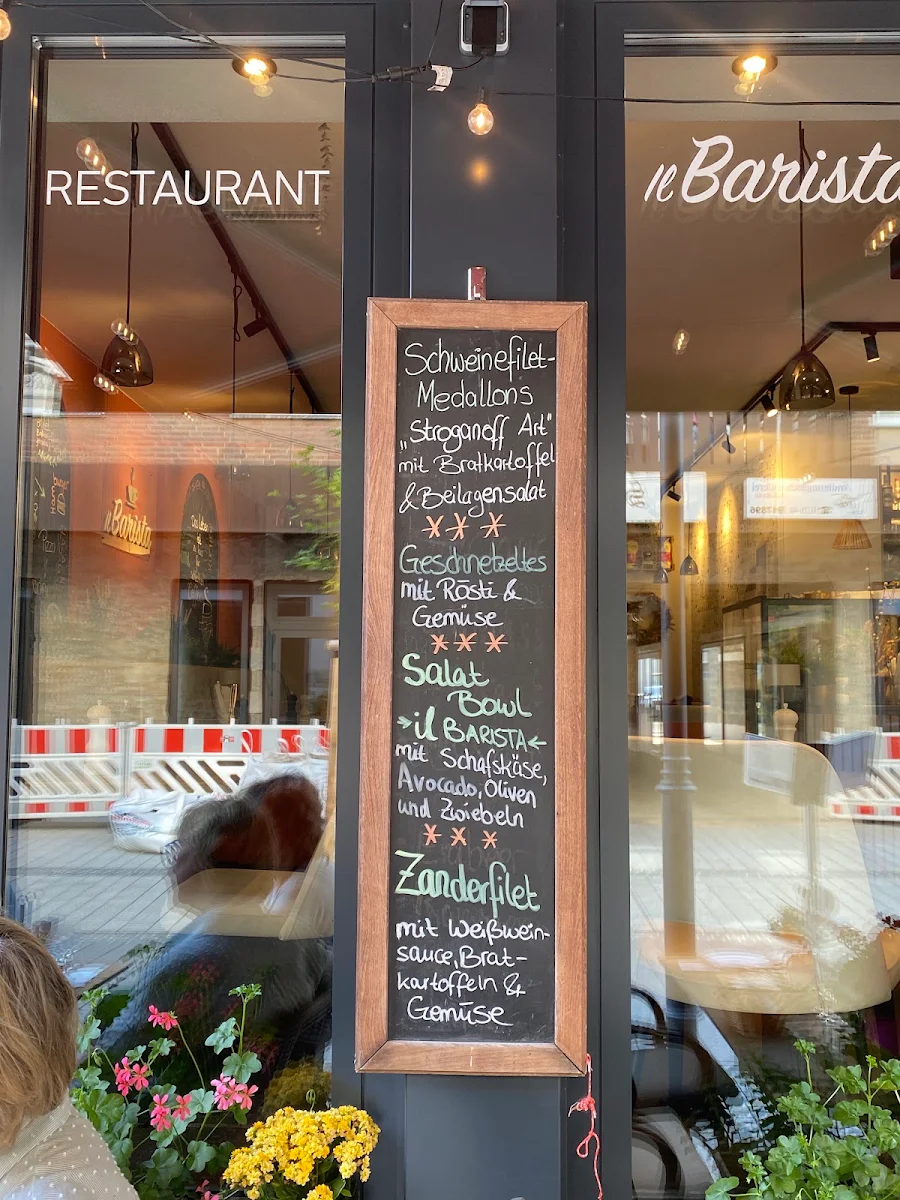 RESTAURANT
il Barista
il Barista
Schweinefilet-
Medallons
„Stroganoff Art"
mit Bratkartoffel
& Beilagensalat
* * *
Geschnetzeltes
mit Rösti &
Gemüse
* * *
Salat
Bowl
→il BARISTA←
mit Schafskäse,
Avocado, Oliven
und Zwiebeln
* * *
Zanderfilet
mit Weißwein-
sauce, Brat-
kartoffeln &
Gemüse